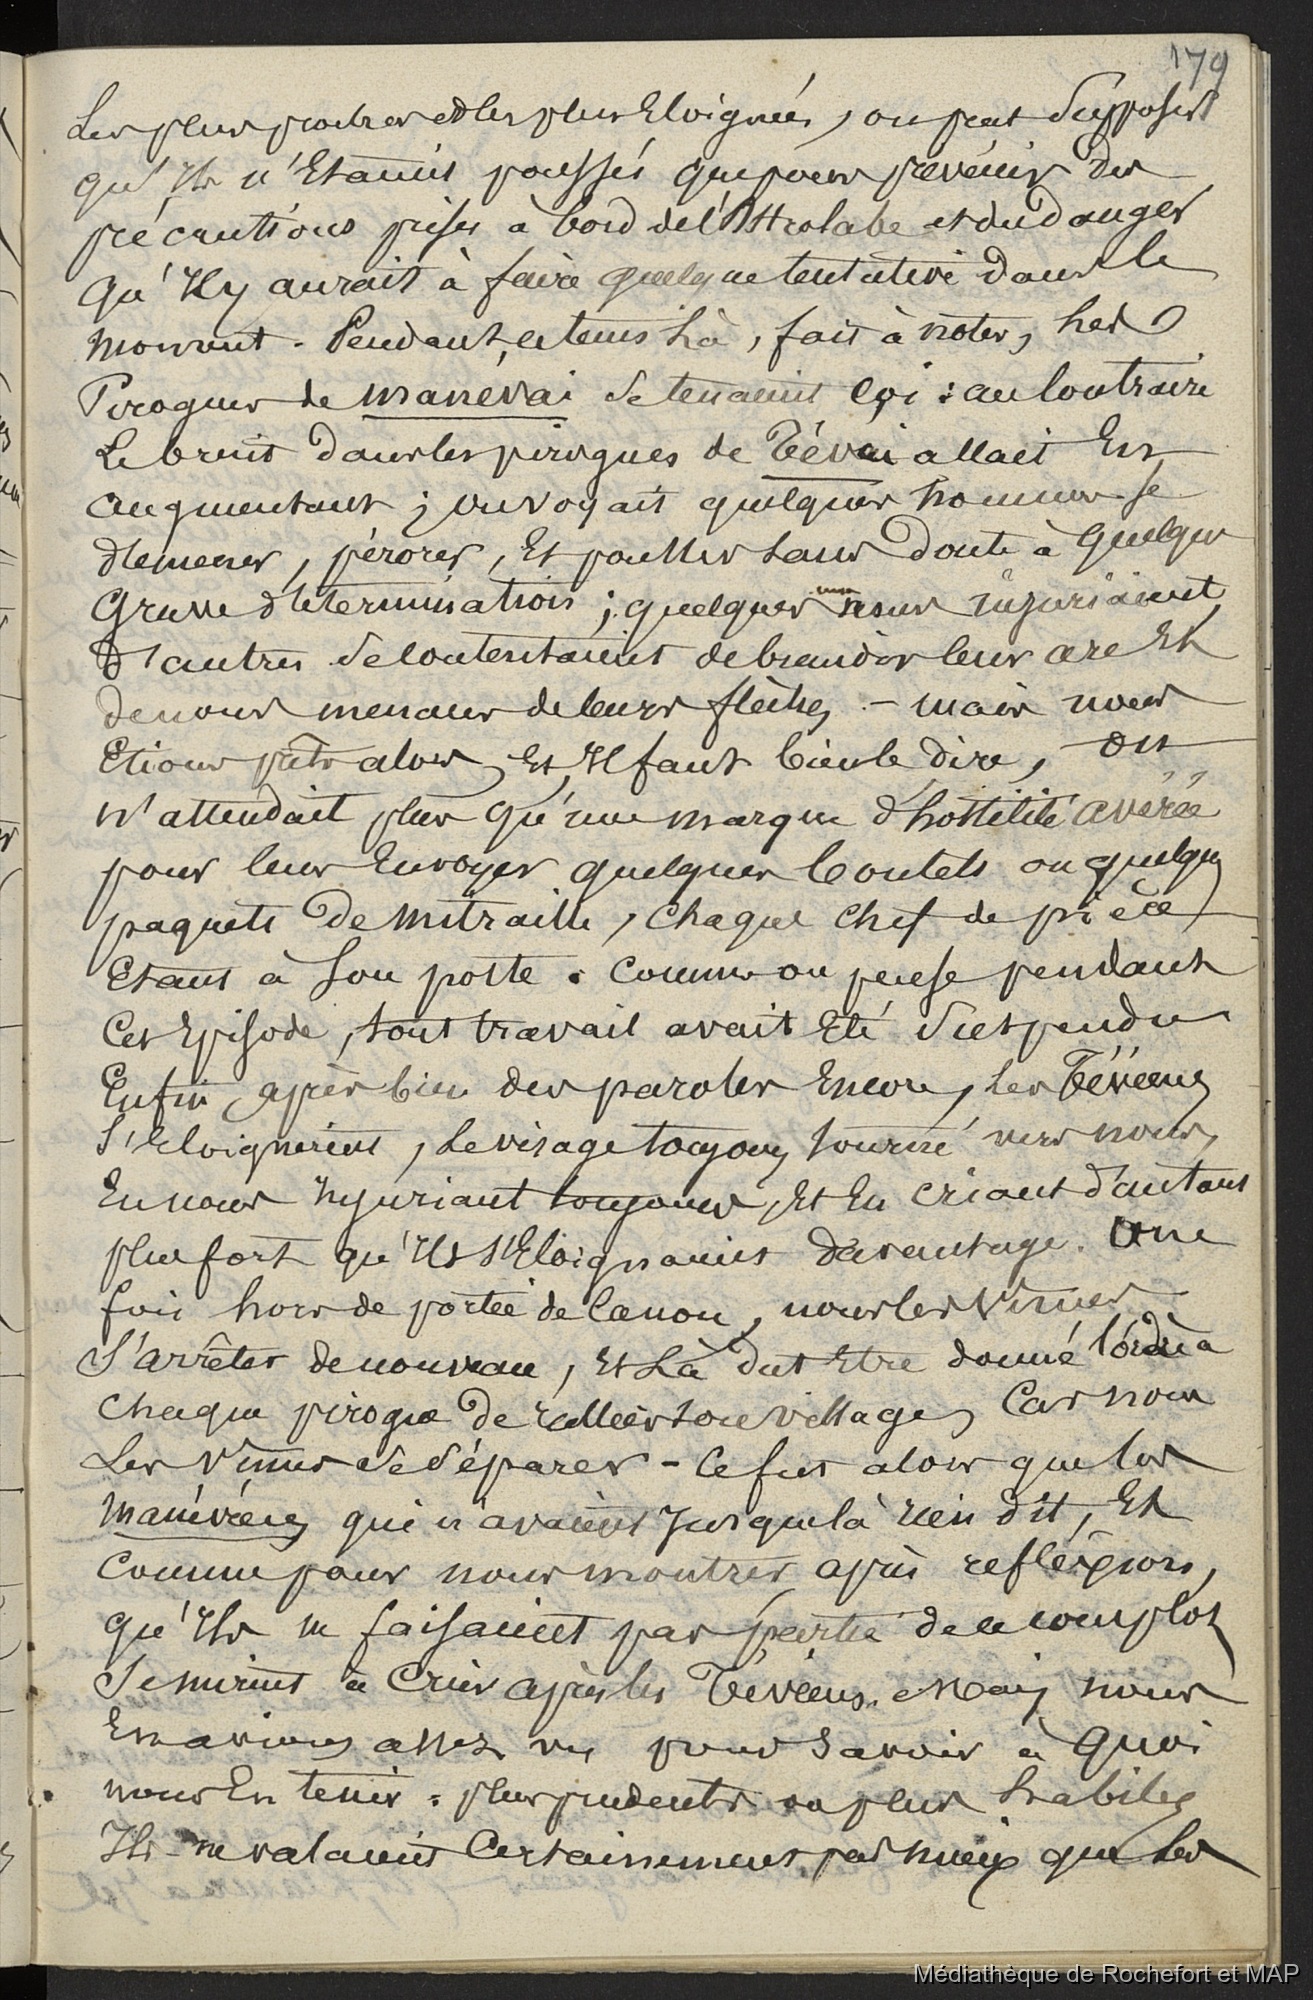 179
Les plus proches et les plus Eloignés, on peut Supposer
qu'Ils n'Etaient poussés que pour prévenir des
précautions prises à bord de l'Astrolabe et du danger
qu'Il y aurait à faire quelque tentative dans le
moment. Pendant ce tems Là, fait à noter, Les
Pirogues de manévai se tenaient coi : au Contraire
Le bruit dans les pirogues de Tévai allait En
augmentant ; on voyait quelques hommes se
démener, pérorer, Et pousser sans doute à quelque
Grave détermination ; quelques uns nous injuriaient
d'autres se Contentaient de brandir leur arc Et
de nous menacer de leurs flèches - mais nous
Etions prêts alors, Et Il faut bien le dire, on
n'attendait plus qu'une marque d'hostilité avérée
pour leur Envoyer quelques boulets ou quelques
paquets de mitraille, chaque chef de pièce
Etant à Son poste. Comme on pense pendant
Cet Episode, tout travail avait Eté Suspendu
Enfin après bien des paroles Encore, Les Tévéens
S'Eloignèrent, Le visage toujours tourné vers nous,
En nous Injuriant toujours, Et En criant d'autant
plus fort qu'Ils s'Eloignaient davantage. Une
fois hors de portée de Canon, nous les Vimes
S'arrêter de nouveau, Et Là dut Etre donné l'ordre à
chaque pirogue de rallier son village, Car nous
Les Vimes se séparer - Ce fut alors que les
manévéens qui n'avaient Jusque là rien dit, Et
Comme pour nous montrer, après refléxion,
qu'Ils ne faisaient pas partie de ce complot
Se mirent à Crier après les Tévéens. Mais nous
En avions assez vu pour savoir à quoi
nous En tenir. plus prudents ou plus habiles
Ils ne valaient Certainement pas mieux que Les
Médiathèque de Rochefort et MAP